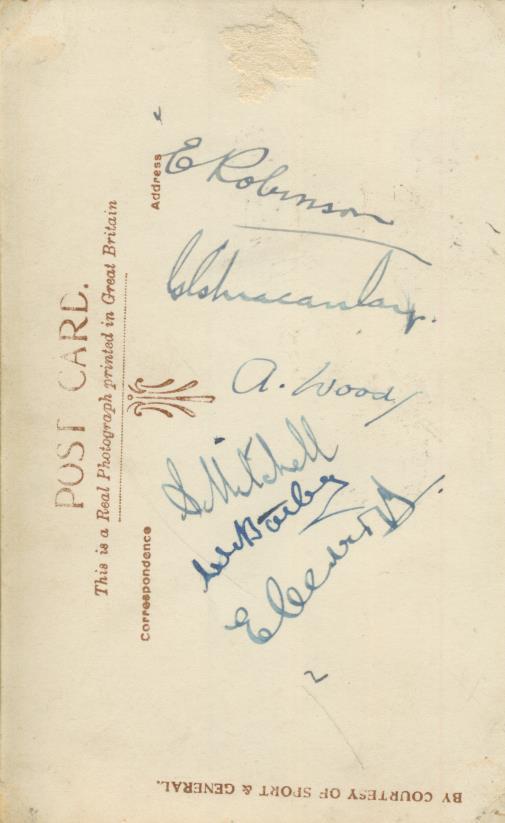 POST CARD.
This is a Real Photograph printed in Great Britain
Correspondence
Address
E Robinson
A. Wood
Mitchell
BY COURTESY OF SPORT & GENERAL.